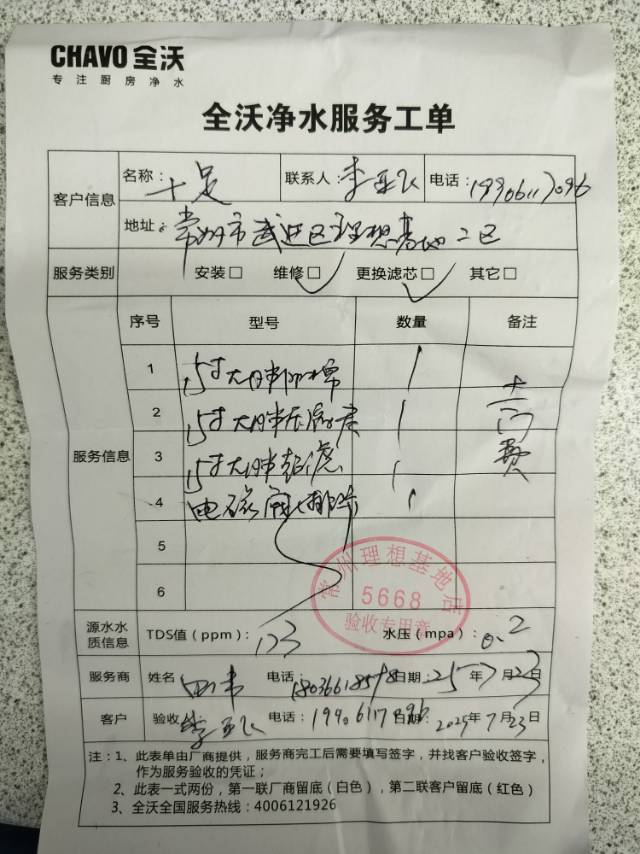 CHAVO 全沃
专注厨房净水
全沃净水服务工单
客户信息
名称: 十足 联系人: 李亚飞 电话: 19906117096
地址: 常州市武进区理想基地二区
服务类别 安装□ 维修□ 更换滤芯□ 其它□
服务信息
序号 型号 数量 备注
1 1
2 1
3 1
4 电磁阀 1
5
6
费
常州理想基地店
5668
验收专用章
源水水质信息 TDS值(ppm): 123 水压(mpa): 0.2
服务商 姓名 电话: 日期: 25年7月23日
客户 验收 李亚飞 电话: 日期: 2025年7月23日
注: 1、此表单由厂商提供,服务商完工后需要填写签字,并找客户验收签字,
作为服务验收的凭证;
2、此表一式两份,第一联厂商留底(白色),第二联客户留底(红色)
3、全沃全国服务热线: 4006121926